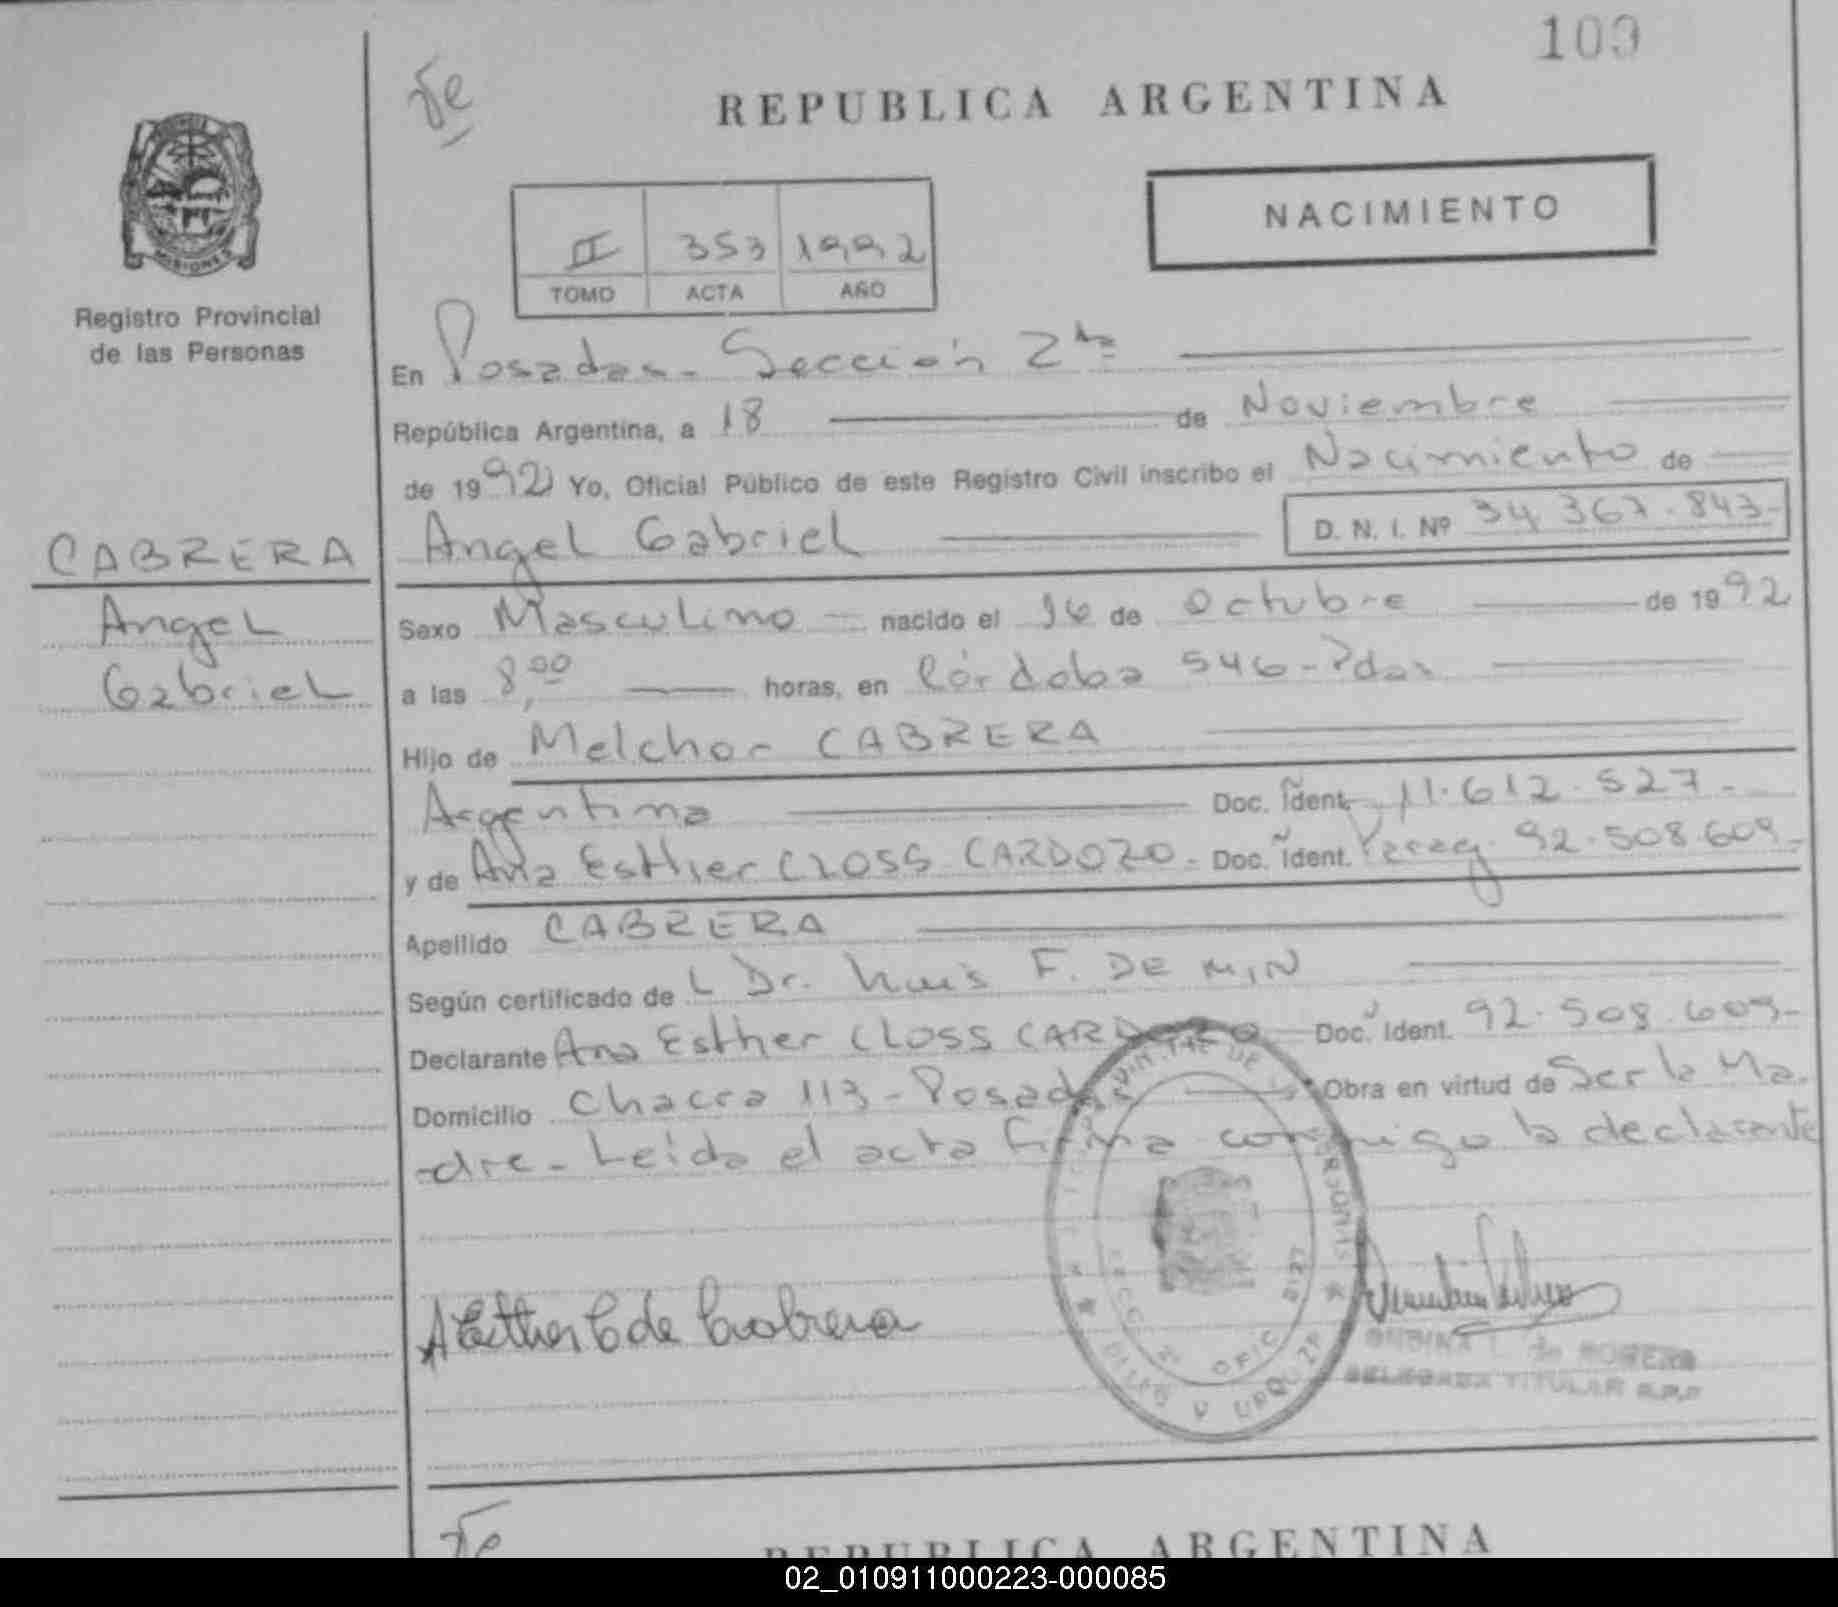 109
Te
REPUBLICA ARGENTINA
NACIMIENTO
II 353 1992
TOMO ACTA AÑO
MISIONES
Registro Provincial
de las Personas
En Posadas - Sección 2da
República Argentina, a 18 de Noviembre
de 1992 Yo, Oficial Público de este Registro Civil inscribo el Nacimiento de
CABRERA
Angel Gabriel D. N. I. Nº 34.367.843-
Angel
Gabriel
Sexo Masculino nacido el 16 de Octubre de 1992
a las 8,00 horas, en Córdoba 546 - Pdas
Hijo de Melchor CABRERA
Argentina Doc. Ident. 11.612.527-
y de Ana Esther CLOSS CARDOZO - Doc. Ident. Parag. 92.508.609-
Apellido CABRERA
Según certificado de L Dr. Luis F. DE MIN
Declarante Ana Esther CLOSS CARDOZO Doc. Ident. 92.508.609-
Domicilio Chacra 113 - Posadas Obra en virtud de Ser la Ma-
-dre - Leída el acta firma conmigo la declarante
A Esther C de Cabrera
de ROMERO
DELEGADA TITULAR R.P.P
Te
REPUBLICA ARGENTINA
02_010911000223-000085